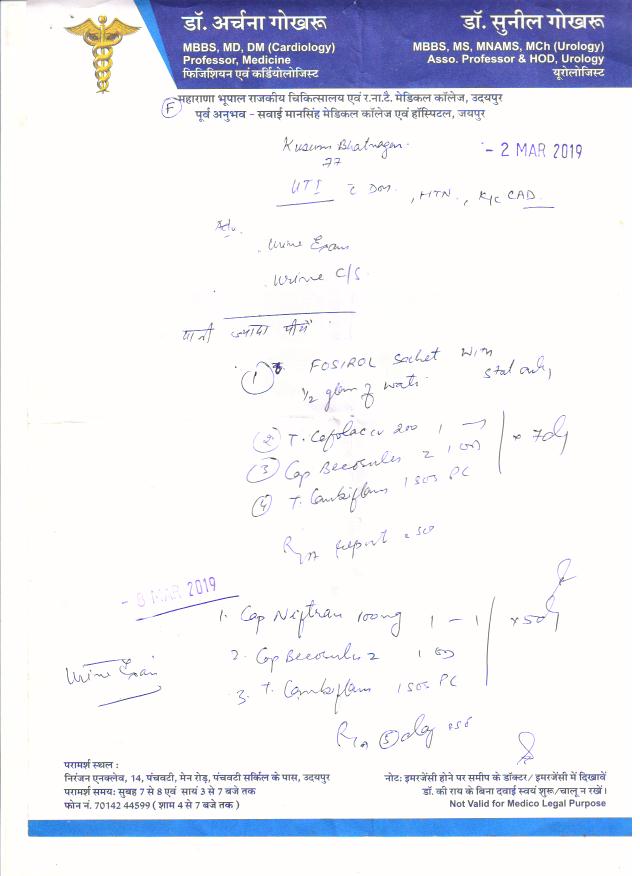 डॉ. अर्चना गोखरू
MBBS, MD, DM (Cardiology)
Professor, Medicine
फिजिशियन एवं कार्डियोलोजिस्ट
डॉ. सुनील गोखरू
MBBS, MS, MNAMS, MCh (Urology)
Asso. Professor & HOD, Urology
यूरोलोजिस्ट
F महाराणा भूपाल राजकीय चिकित्सालय एवं र.ना.टै. मेडिकल कॉलेज, उदयपुर
पूर्व अनुभव - सवाई मानसिंह मेडिकल कॉलेज एवं हॉस्पिटल, जयपुर
Kusum Bhatnagar
- 2 MAR 2019
77
UTI c DM, HTN, K/c CAD
Adv.
Urine Exam
Urine C/S
पानी ज्यादा पीयें
1 FOSIROL Sachet with
1/2 glass of water stat only
2 T. Cefolac cv 200 1 - 1
3 Cap Becosules Z 1 OD x 7d
4 T. Combiflam 1 SOS PC
report
- 8 MAR 2019
1. Cap Niftran 100mg 1 - 1 x 5d
Urine Exam
2. Cap Becosules Z 1 OD
3. T. Combiflam 1 SOS PC
5 day
परामर्श स्थल :
निरंजन एनक्लेव, 14, पंचवटी, मेन रोड़, पंचवटी सर्किल के पास, उदयपुर
परामर्श समय: सुबह 7 से 8 एवं सायं 3 से 7 बजे तक
फोन नं. 70142 44599 ( शाम 4 से 7 बजे तक )
नोट: इमरजेंसी होने पर समीप के डॉक्टर/ इमरजेंसी में दिखावें
डॉ. की राय के बिना दवाई स्वयं शुरू/चालू न रखें।
Not Valid for Medico Legal Purpose